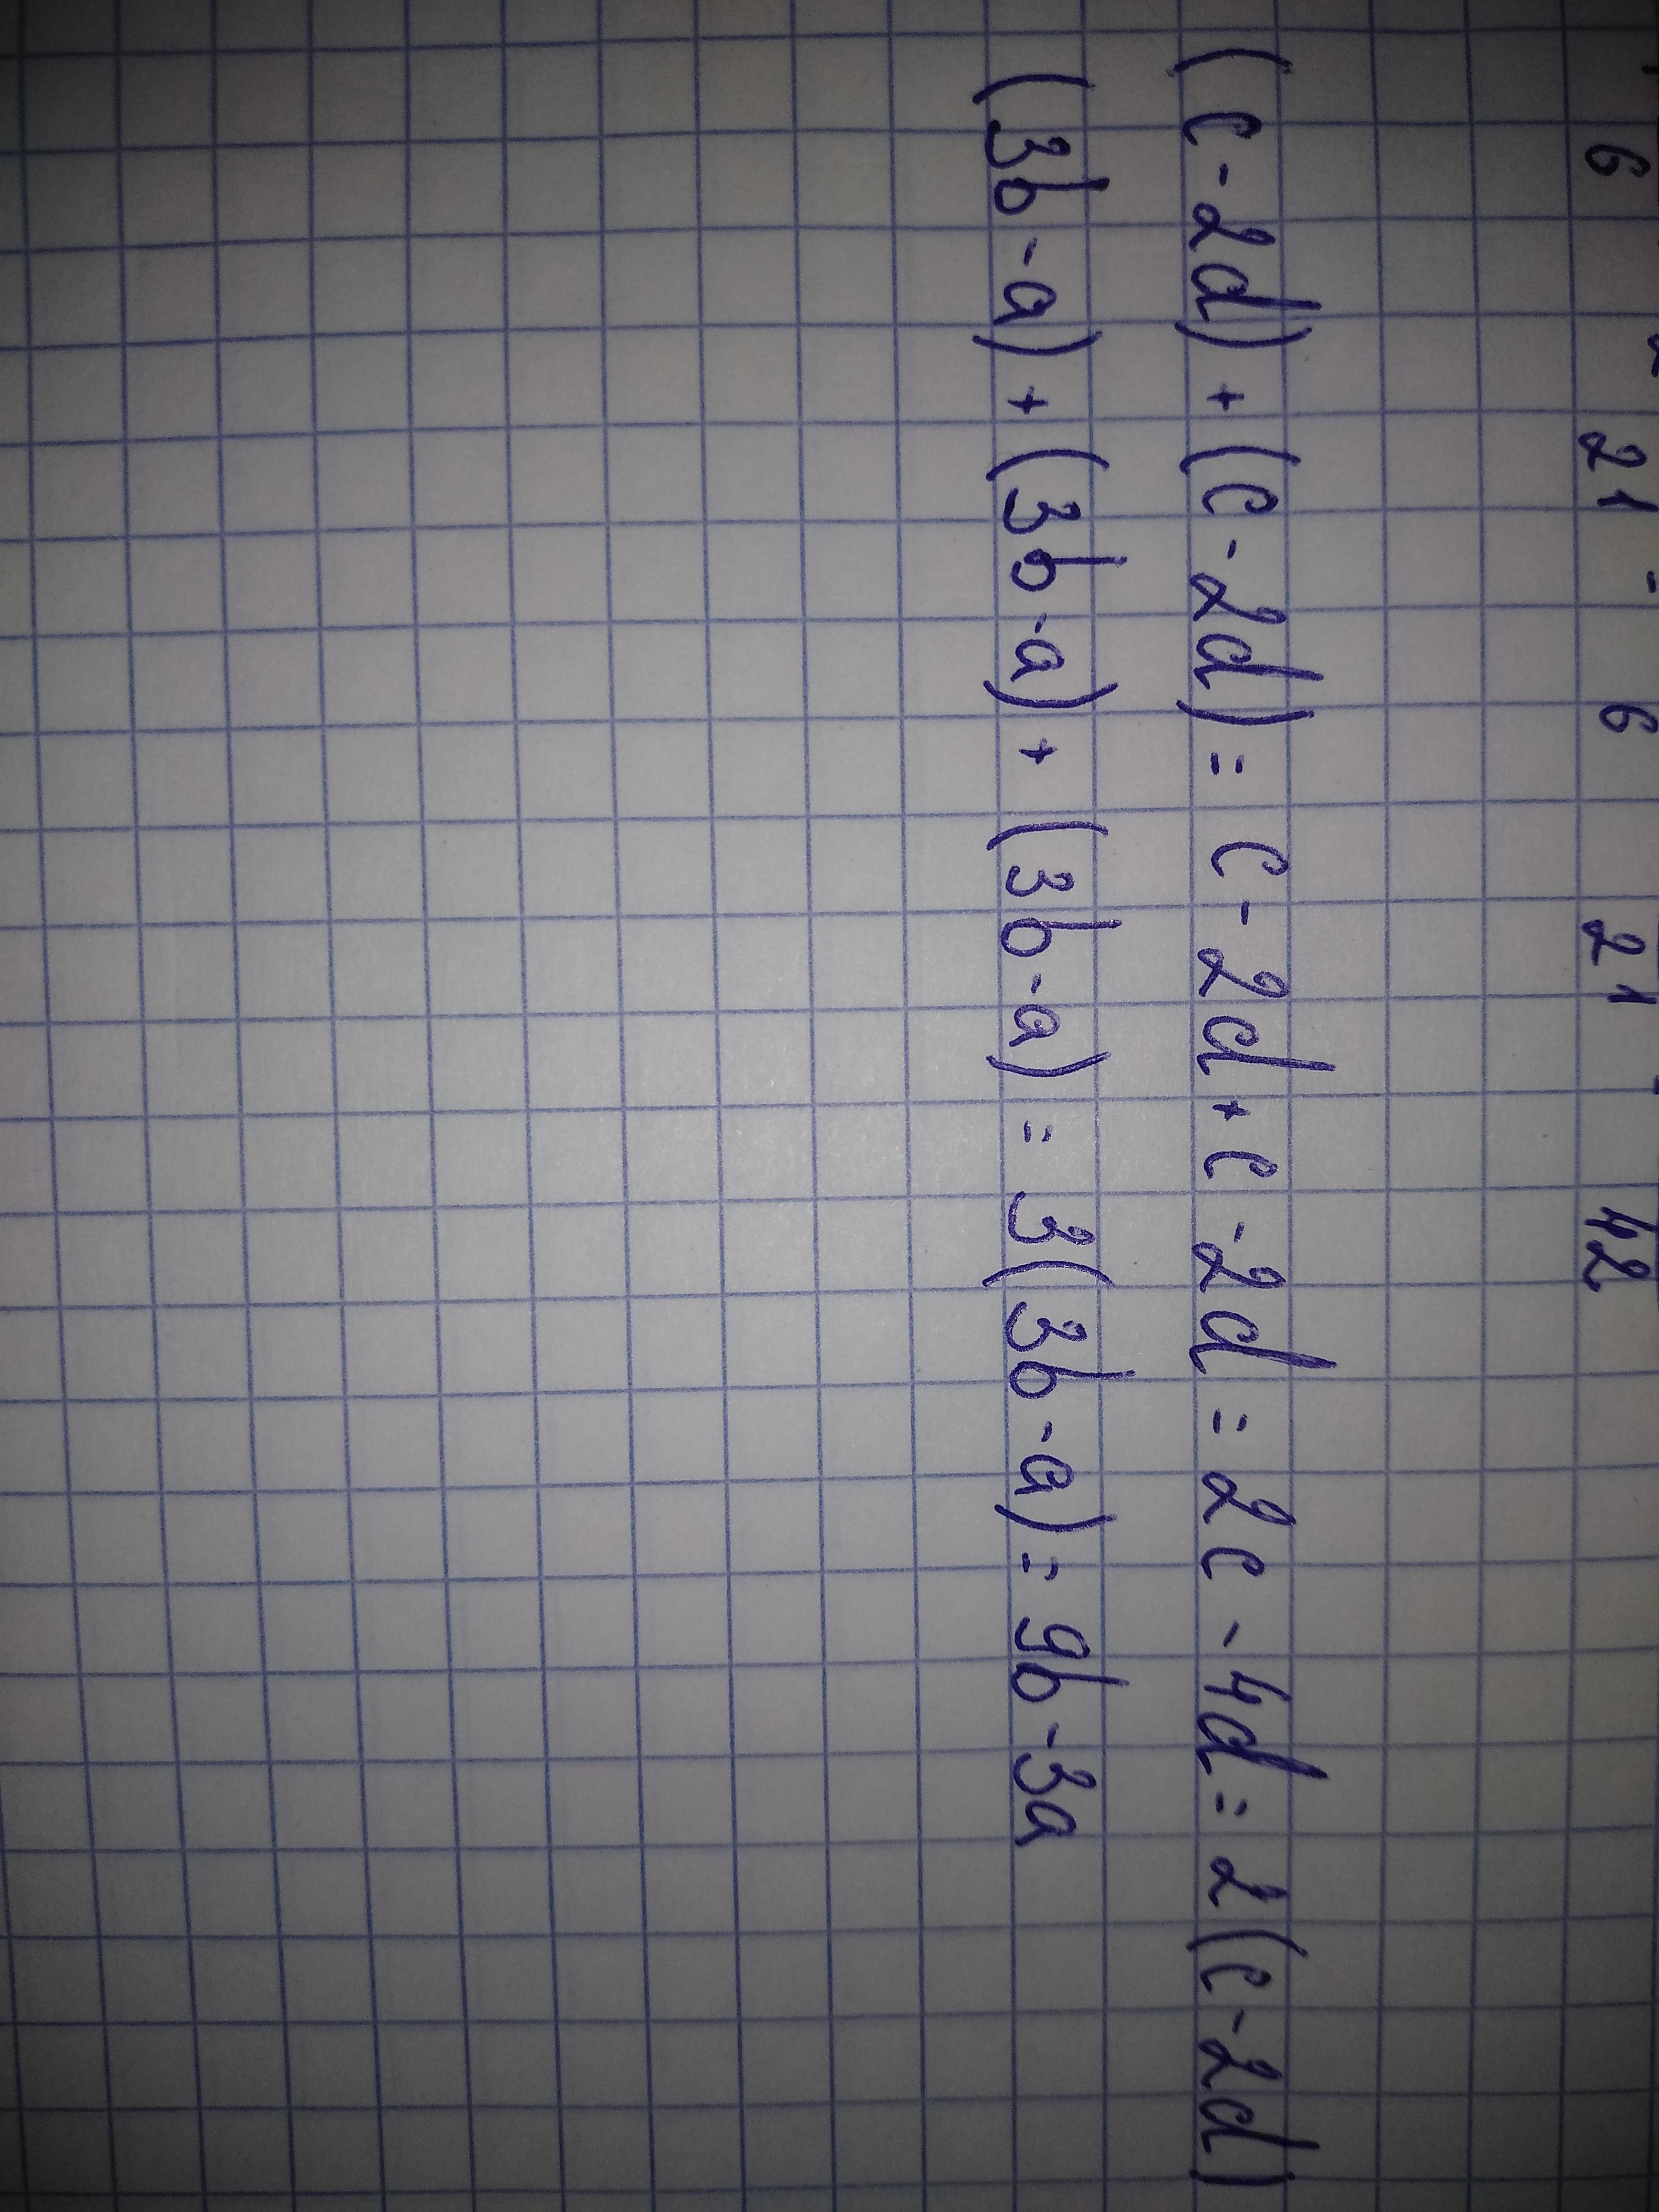 6 21 - 6 21 42
(c-2d)+(c-2d)=c-2d+c-2d=2c-4d=2(c-2d)
(3b-a)+(3b-a)+(3b-a)=3(3b-a)=9b-3a